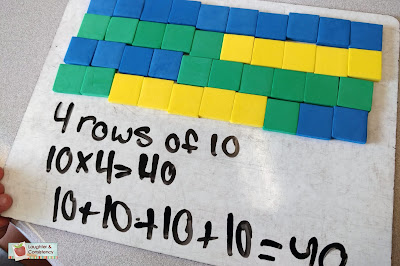 4 rows of 10
10x4=40
10+10+10+10=40
Laughter &
Consistency